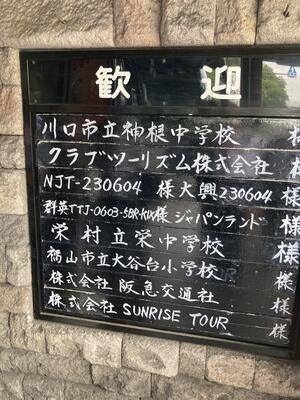 歓迎
川口市立神根中学校 様
クラブツーリズム株式会社 様
NJT-230604 様大興230604 様
群英TTJ-0603-5BR-KIX様 ジャパンランド 様
栄村立栄中学校 様
福山市立大谷台小学校 様
株式会社 阪急交通社 様
株式会社 SUNRISE TOUR 様